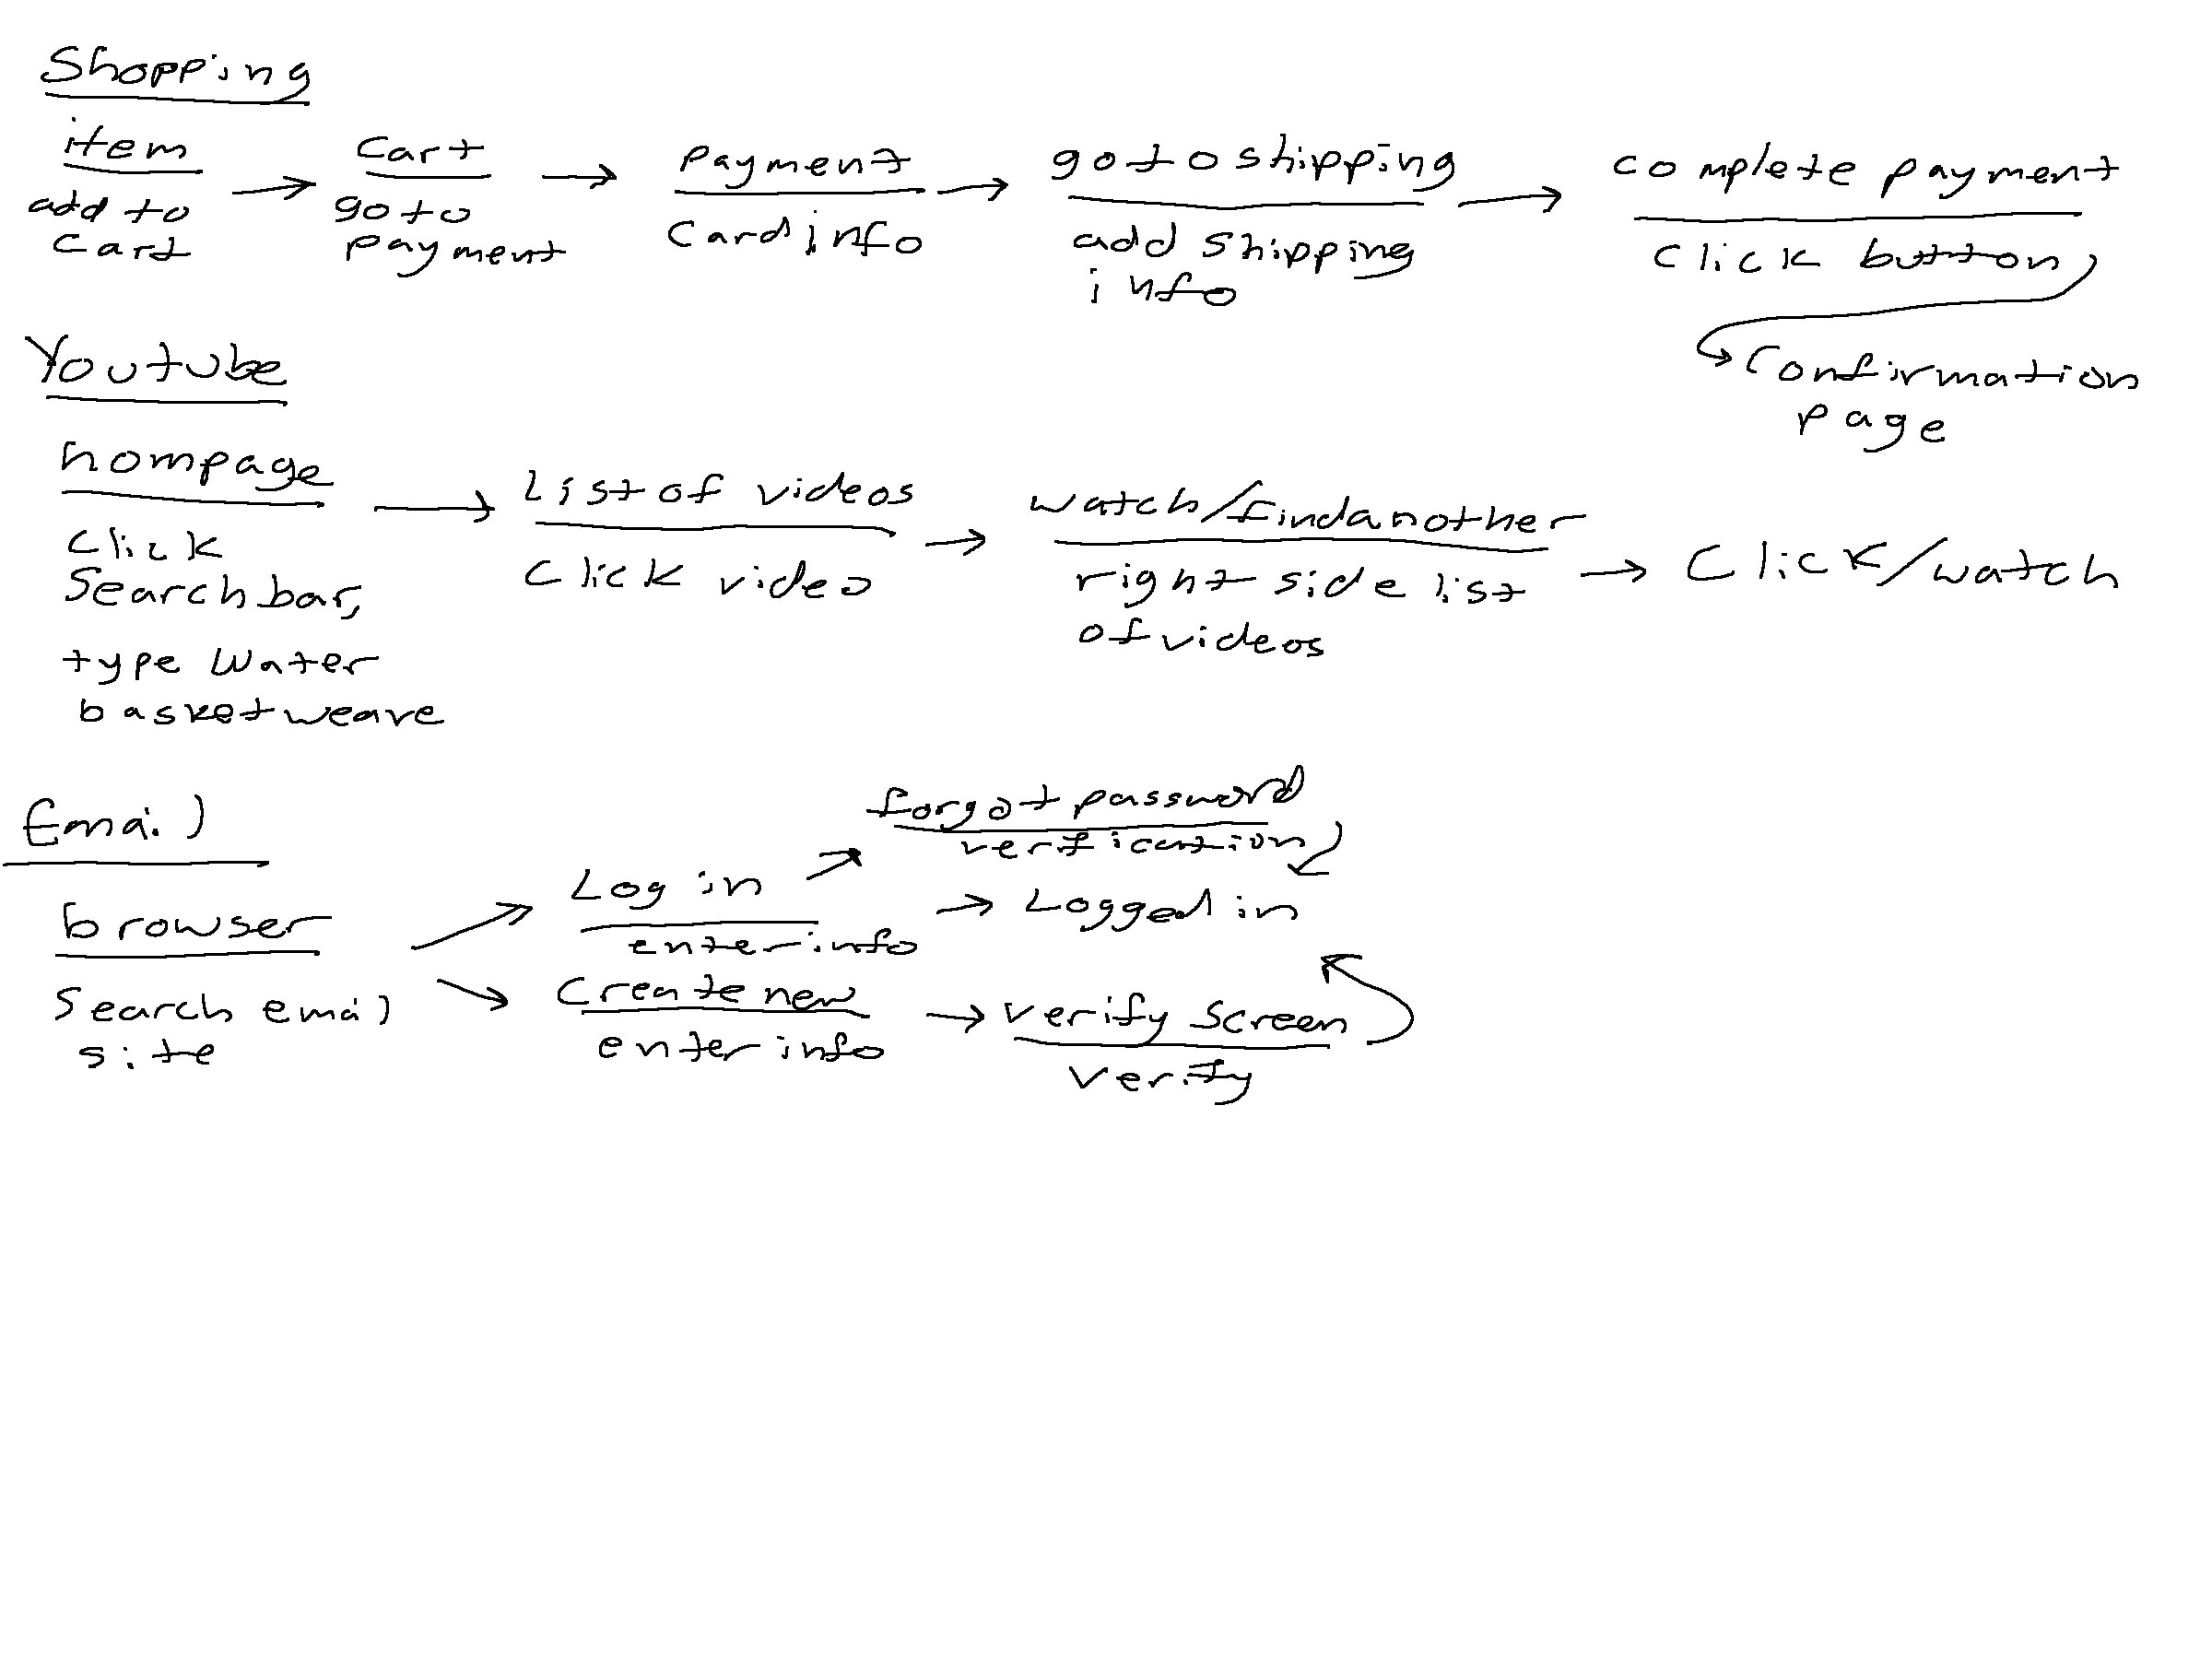 Shopping
item
add to
cart
cart
go to
payment
payment
card info
go to shipping
add shipping
info
complete payment
click button
confirmation
page
Youtube
hompage
click
search bar,
type water
basket weave
list of videos
click video
watch/find another
right side list
of videos
click/watch
Email
browser
search email
site
Log in
enter info
forgot password
verification
Logged in
create new
enter info
verify screen
verify